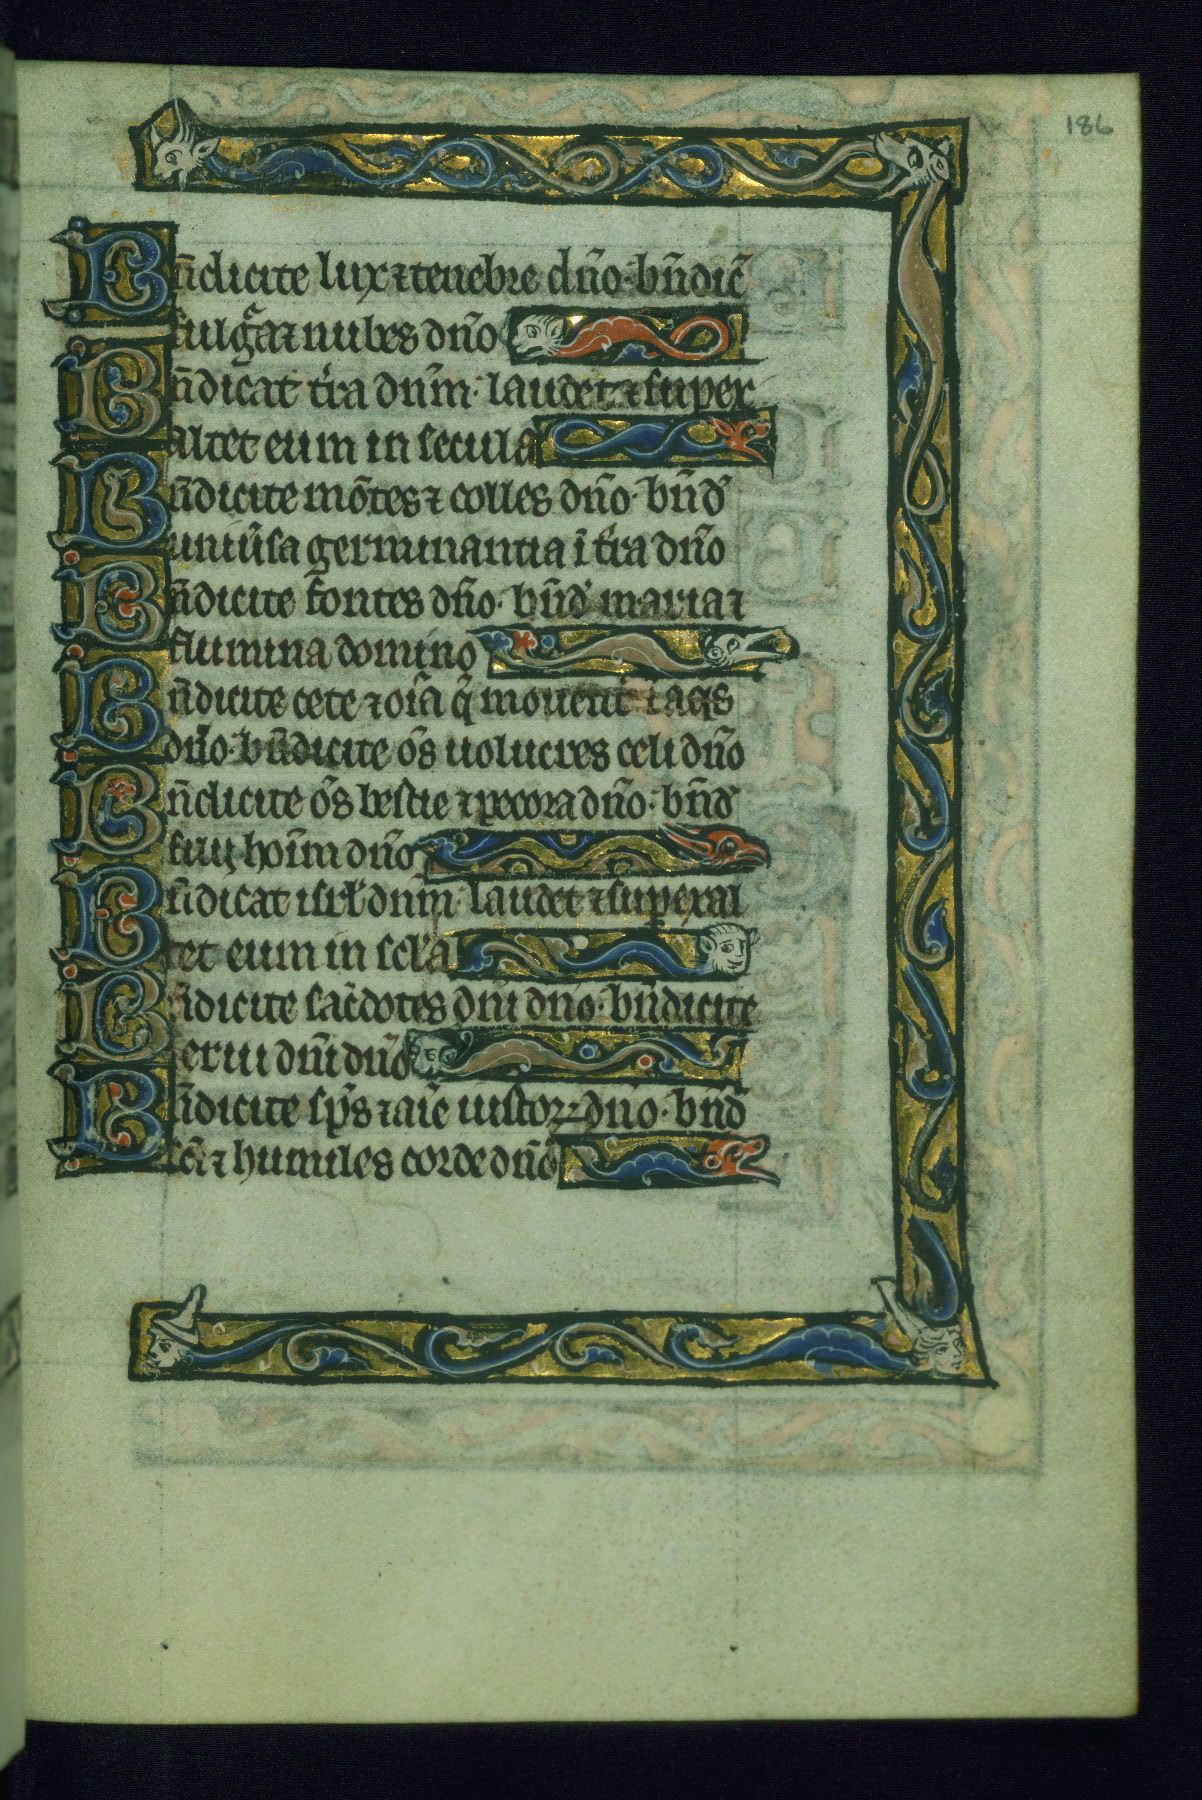 186
Bn̄dicite lux ⁊ tenebre dn̄o· bn̄dic̄
fulg̃a ⁊ nubes dn̄o
Bn̄dicat t̓ra dnm̄· laudet ⁊ super
altet eum in secula
Bn̄dicite mōtes ⁊ colles dn̄o· bn̄d̓
uniu̓sa germinantia ī t̓ra dn̄o
Bn̄dicite fontes dn̄o· bn̄d̓ maria ⁊
flumina domino
Bn̄dicite cete ⁊ oīa q̄ mouent̓ ī aqis
dn̄o· bn̄dicite ōs uolucres celi dn̄o
Bn̄dicite ōs bestie ⁊ pecora dn̄o· bn̄d̓
filii hoīm dn̄o
Bn̄dicat isrl̓ dnm̄· laudet ⁊ superal
tet eum in scl̓a
Bn̄dicite sac̄dotes dn̄i dn̄o· bn̄dicite
serui dn̄i dn̄o
Bn̄dicite sp̄s ⁊ aīe iustoꝝ dn̄o· bn̄d̓
sc̄i ⁊ humiles corde dn̄o